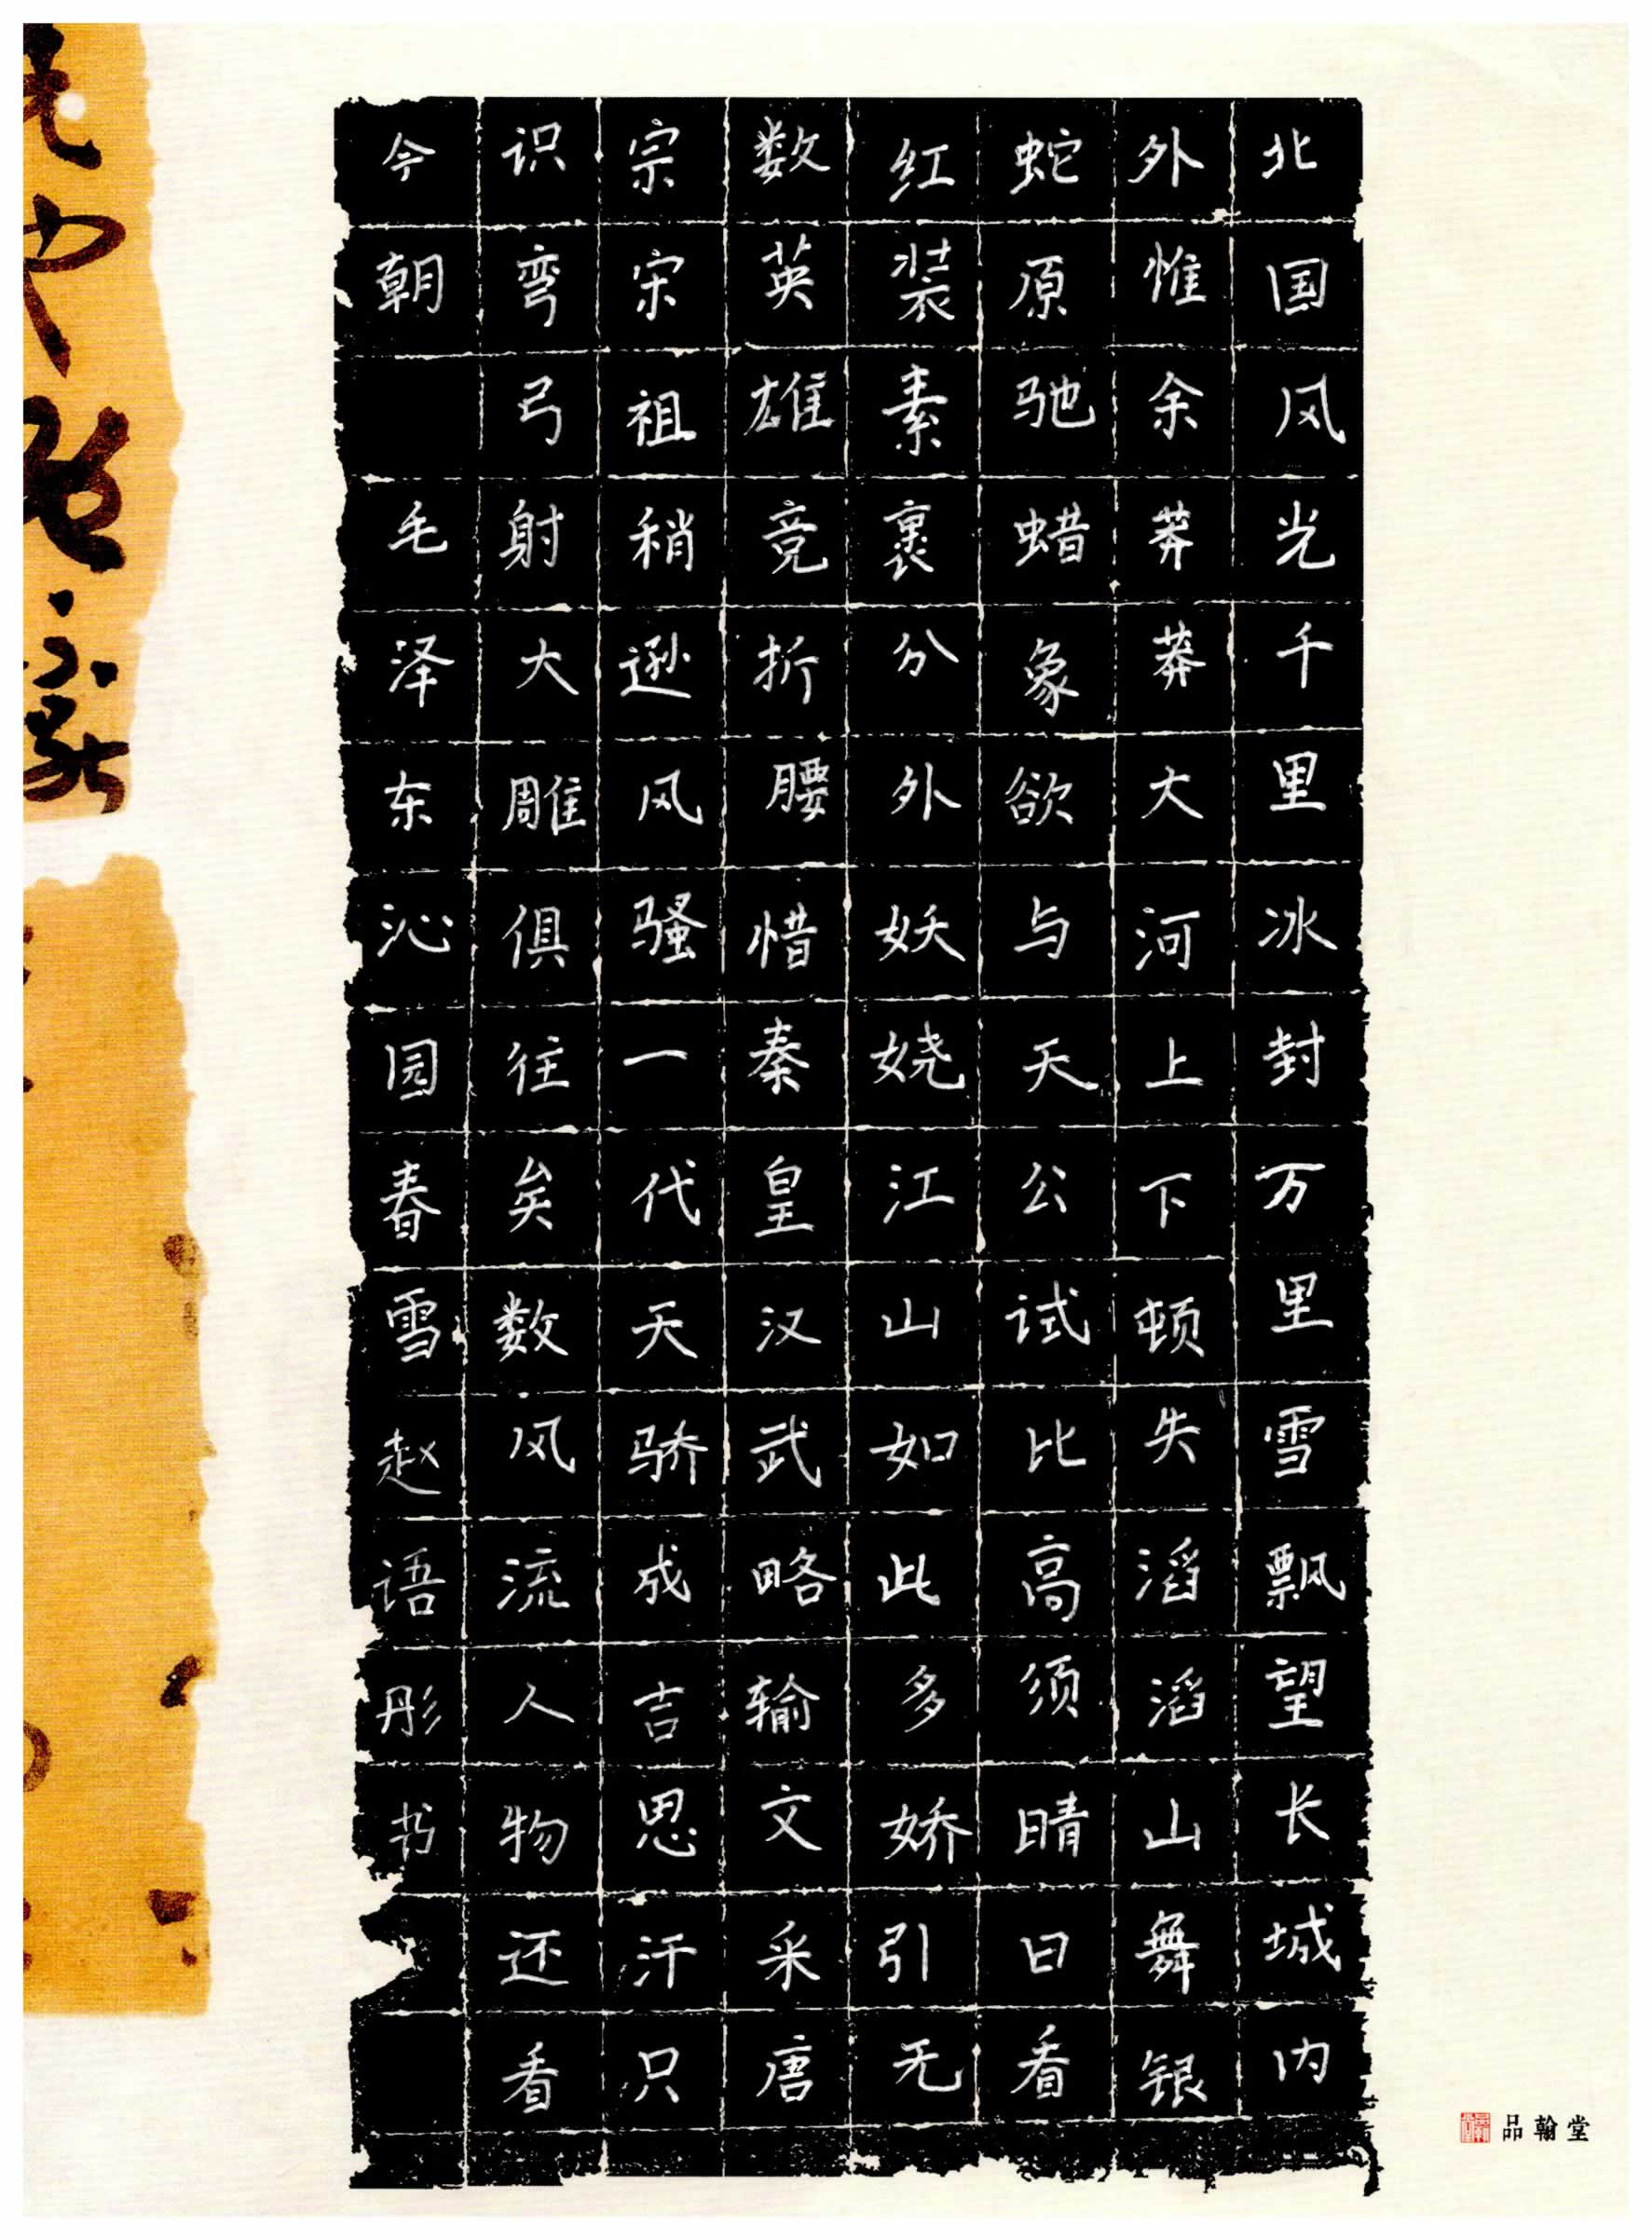 北国风光千里冰封万里雪飘望长城内
外惟余莽莽大河上下顿失滔滔山舞银
蛇原驰蜡象欲与天公试比高须晴日看
红装素裹分外妖娆江山如此多娇引无
数英雄竞折腰惜秦皇汉武略输文采唐
宗宋祖稍逊风骚一代天骄成吉思汗只
识弯弓射大雕俱往矣数风流人物还看
今朝 毛泽东沁园春雪赵语彤书
品翰堂